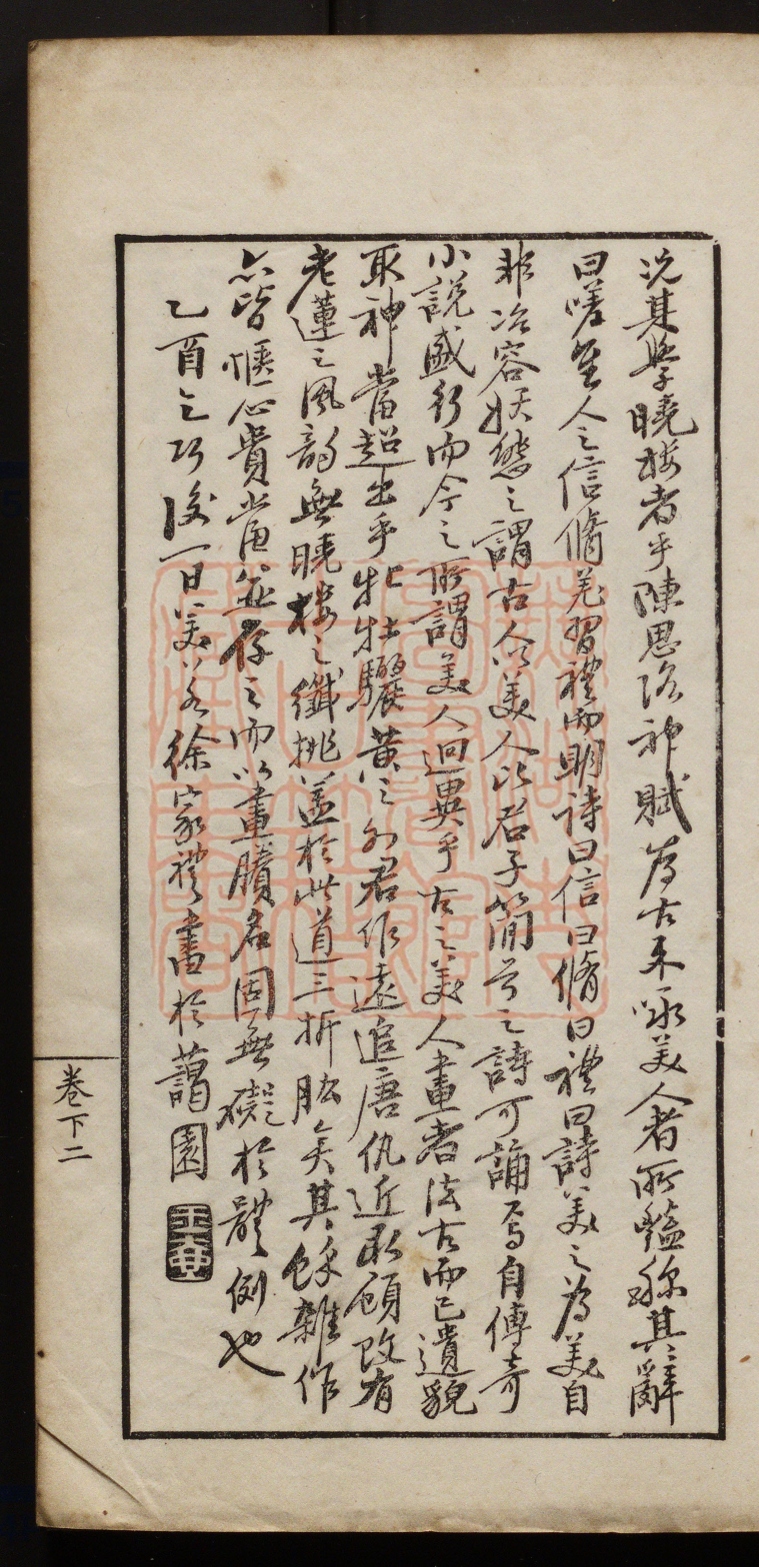 況其學曉樓者乎陳思洛神賦為古來詠美人者所豔稱其辭
曰嗟佳人之信脩羌習禮而明詩曰信曰脩曰禮曰詩美之為美自
非冶容妖態之謂古人以美人比君子簡兮之詩可誦焉自傳奇
小說盛行而今之所謂美人迥異乎古之美人畫者法古而已遺貌
取神當超出乎牝牡驪黃之外君作遠追唐仇近取顧改有
老蓮之風韵無曉樓之纖挑蓋於此道三折肱矣其餘雜作
亦皆愜心貴當並存之而以畫賸名固無礙於體例也
乙酉乞巧後一日美若徐家禮書於藹園
卷下二